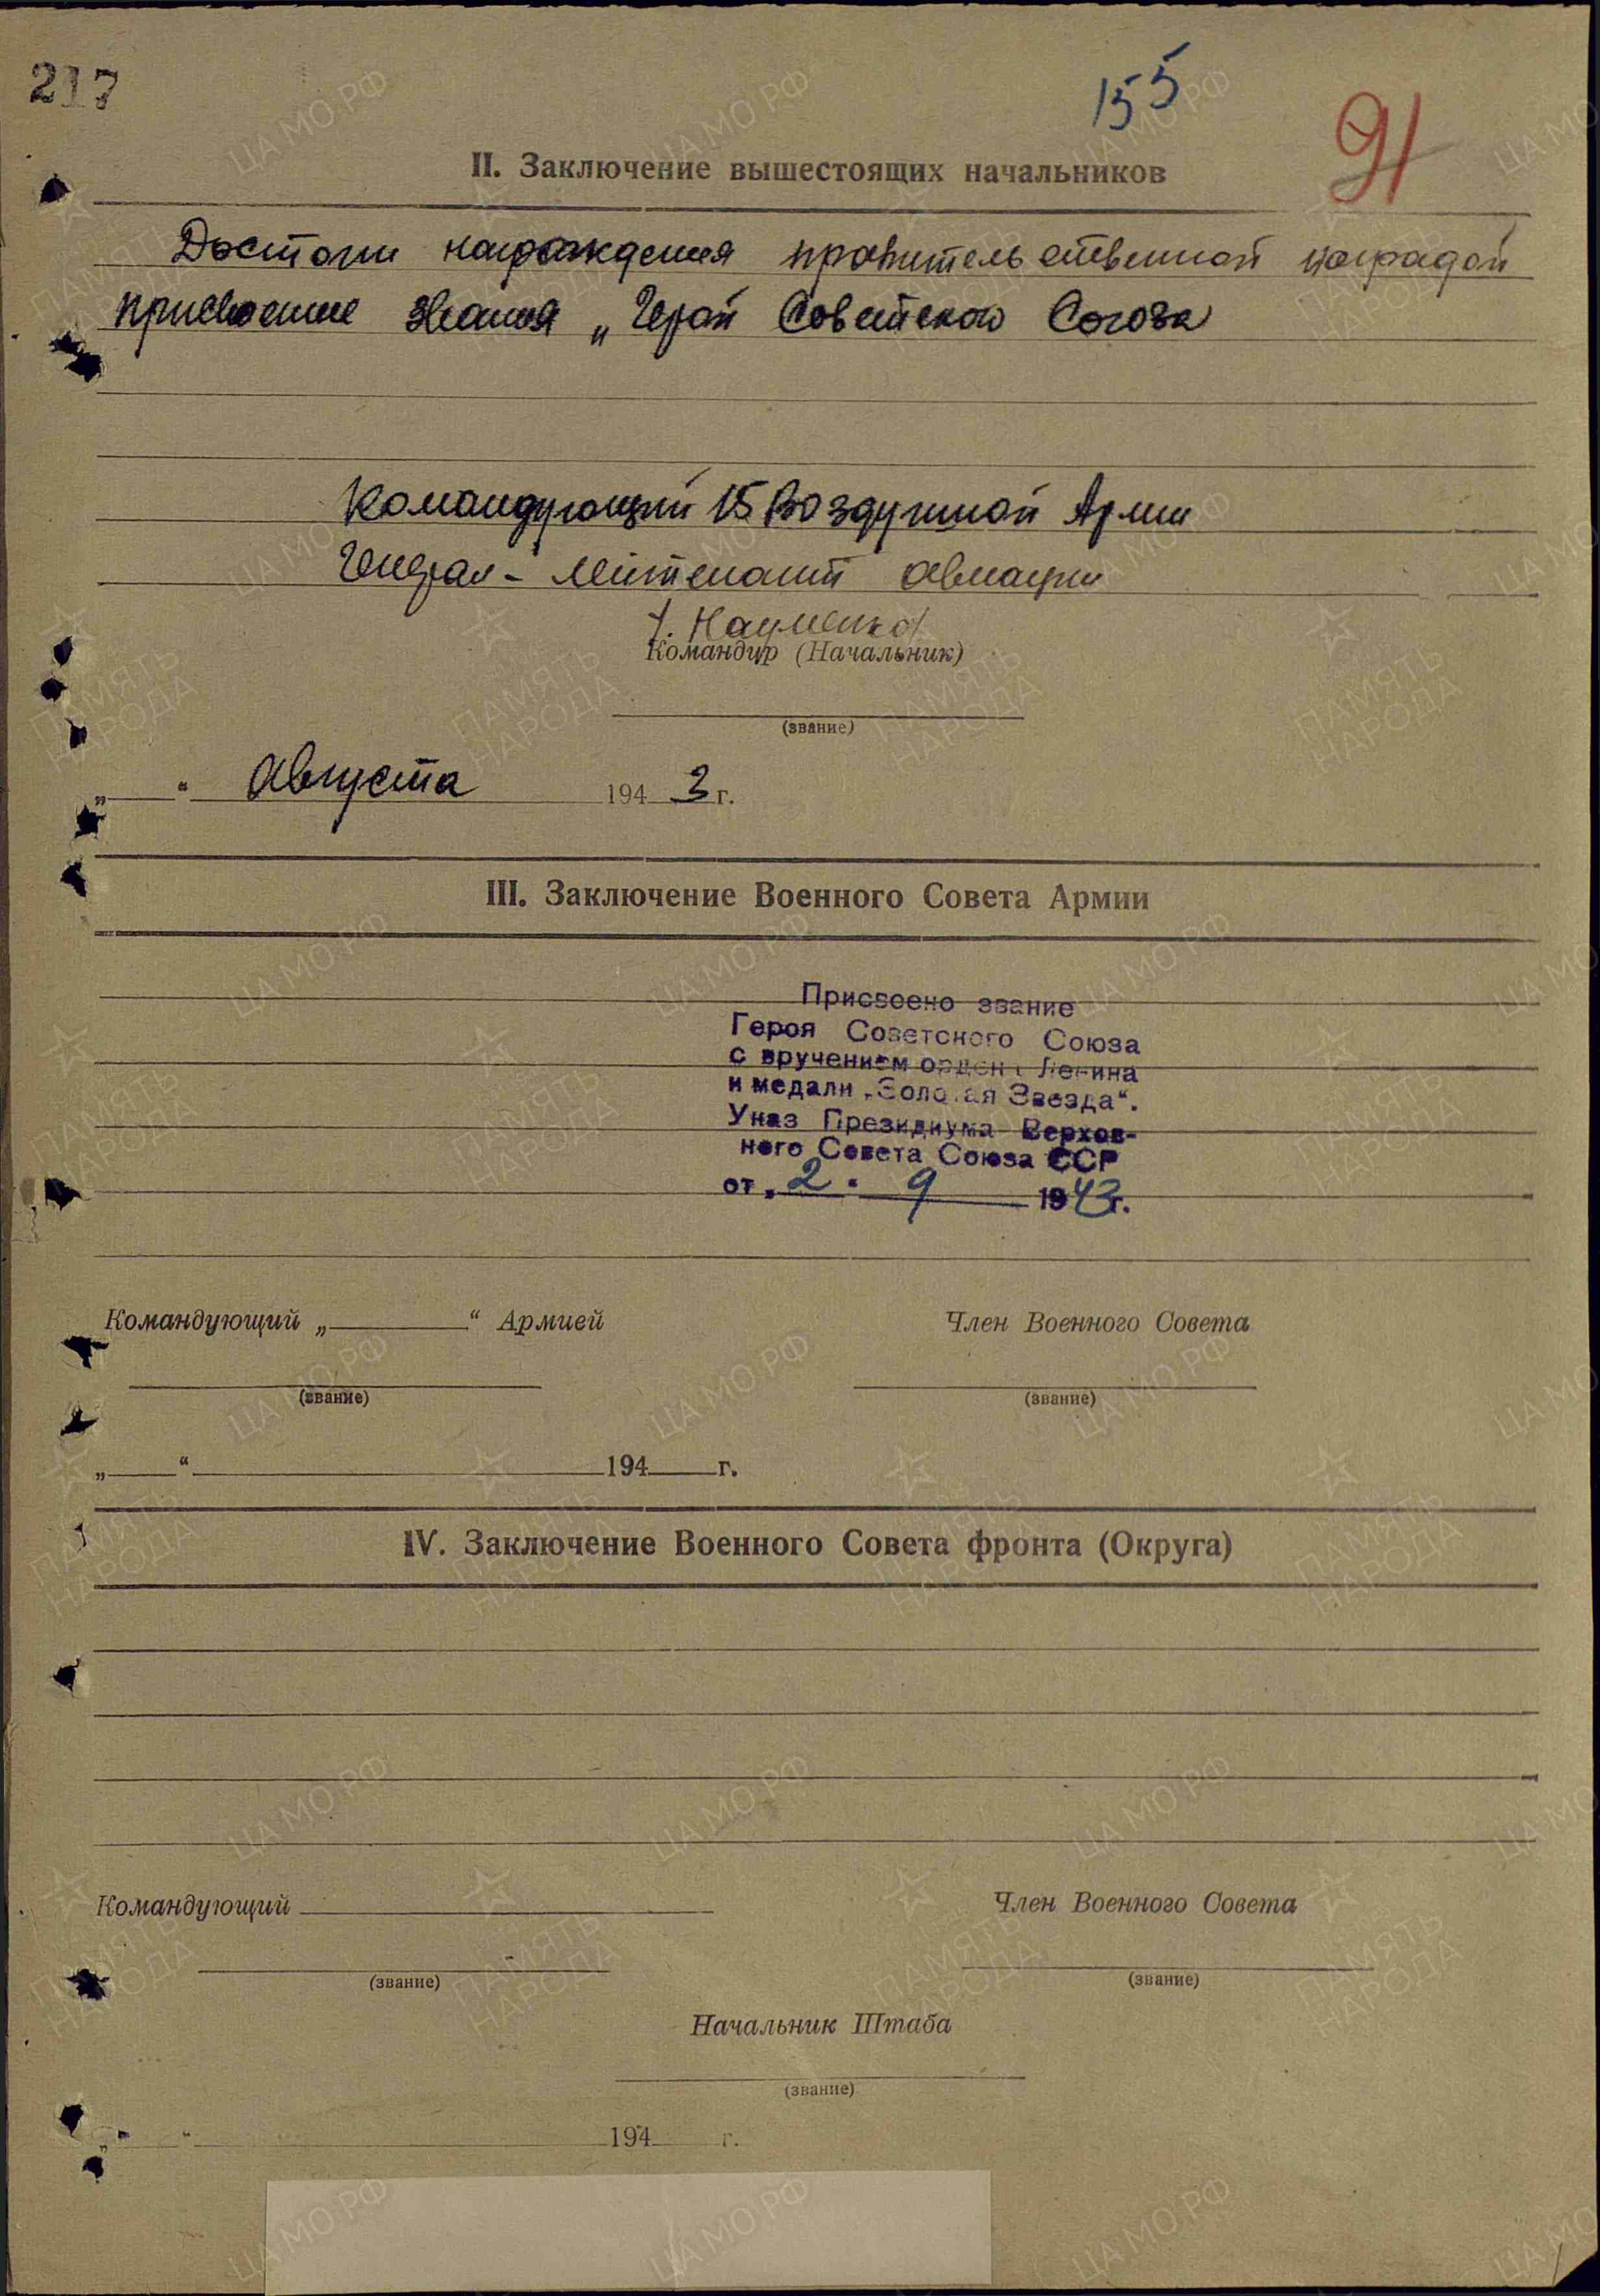 217
155
91
II. Заключение вышестоящих начальников
Достоин награждения правительственной наградой
присвоение звания „Герой Советского Союза
Командующий 15 Воздушной Армии
Генерал-лейтенант авиации
/. Науменко/
Командир (Начальник)
(звание)
„ “ Августа 1943 г.
III. Заключение Военного Совета Армии
Присвоено звание
Героя Советского Союза
с вручением ордена Ленина
и медали „Золотая Звезда“.
Указ Президиума Верхов-
ного Совета Союза ССР
от „2“ 9 1943г.
Командующий „ “ Армией Член Военного Совета
(звание) (звание)
„ “ 194 г.
IV. Заключение Военного Совета фронта (Округа)
Командующий Член Военного Совета
(звание) (звание)
Начальник Штаба
(звание)
„ “ 194 г.
ЦА МО РФ
ПАМЯТЬ НАРОДА